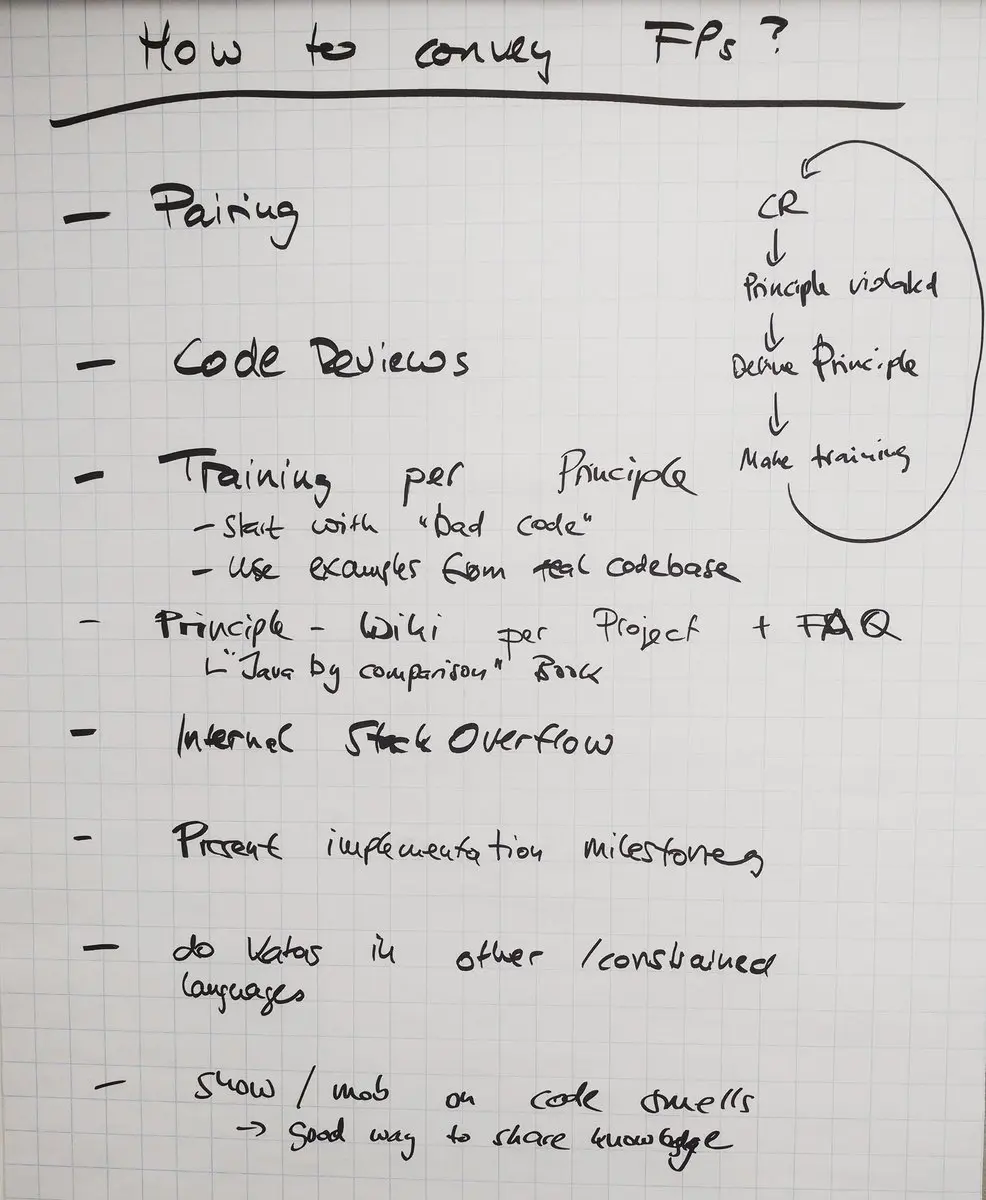 How to convey FPs?
- Pairing
- Code Reviews
- Training per Principle
- Start with "bad code"
- Use examples from real codebase
- Principle - Wiki per Project + FAQ
"Java by comparison" Book
- Internal Stack Overflow
- Present implementation milestones
- do Katas in other / constrained
languages
- show / mob on code smells
→ good way to share knowledge
CR
↓
Principle violated
↓
Define Principle
↓
Make training